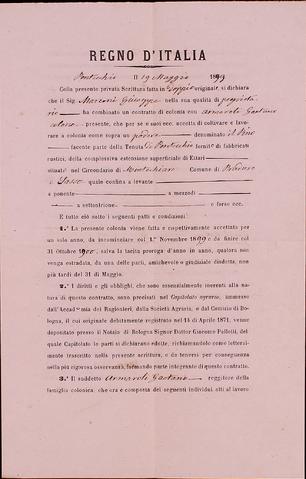 REGNO D'ITALIA
Pontecchio Il 19 Maggio 1899
Colla presente privata Scrittura fatta in doppio originale, si dichiara
che il Sig. Marconi Giuseppe nella sua qualità di proprieta-
rio ha combinato un contratto di colonia con Armaroli Gaetano
presente, che per sè e suoi ecc. accetta di coltivare e lavo-
rare a colonia come sopra un podere denominato il Pino
facente parte della Tenuta di Pontecchio fornit° di fabbricati
rustici, della complessiva estensione superficiale di Ettari
situat° nel Circondario di Comune di
e Sasso quale confina a levante
a ponente a mezzodì
a settentrione e forse ecc.
E tutto ciò sotto i seguenti patti e condizioni:
1.° La presente colonia viene fatta e rispettivamente accettata per
un solo anno, da incominciare col 1.° Novembre 1899 e da finire col
31 Ottobre 1900, salva la tacita proroga d'anno in anno, qualora non
venga estradata, da una delle parti, amichevole o giudiziale disdetta, non
più tardi del 31 di Maggio.
2.° I diritti e gli obblighi, che sono essenzialmente inerenti alla na-
tura di questo contratto, sono precisati nel Capitolato agrario, immesso
dall'Accademia dei Ragionieri, dalla Società Agraria, e dal Comizio di Bolo-
gna, il cui originale debitamente registrato nel 15 di Aprile 1871, venne
depositato presso il Notaio di Bologna Signor Dottor Giacomo Pallotti, del
quale Capitolato le parti si dichiarano edotte, richiamandolo come lettera-
mente trascritto nella presente scrittura, e da tenersi per conseguenza
nella più rigorosa osservanza, formando parte integrante di questo contratto.
3.° Il suddetto Armaroli Gaetano reggitore della
famiglia colonica: che ora è composta dei seguenti individui atti al lavoro